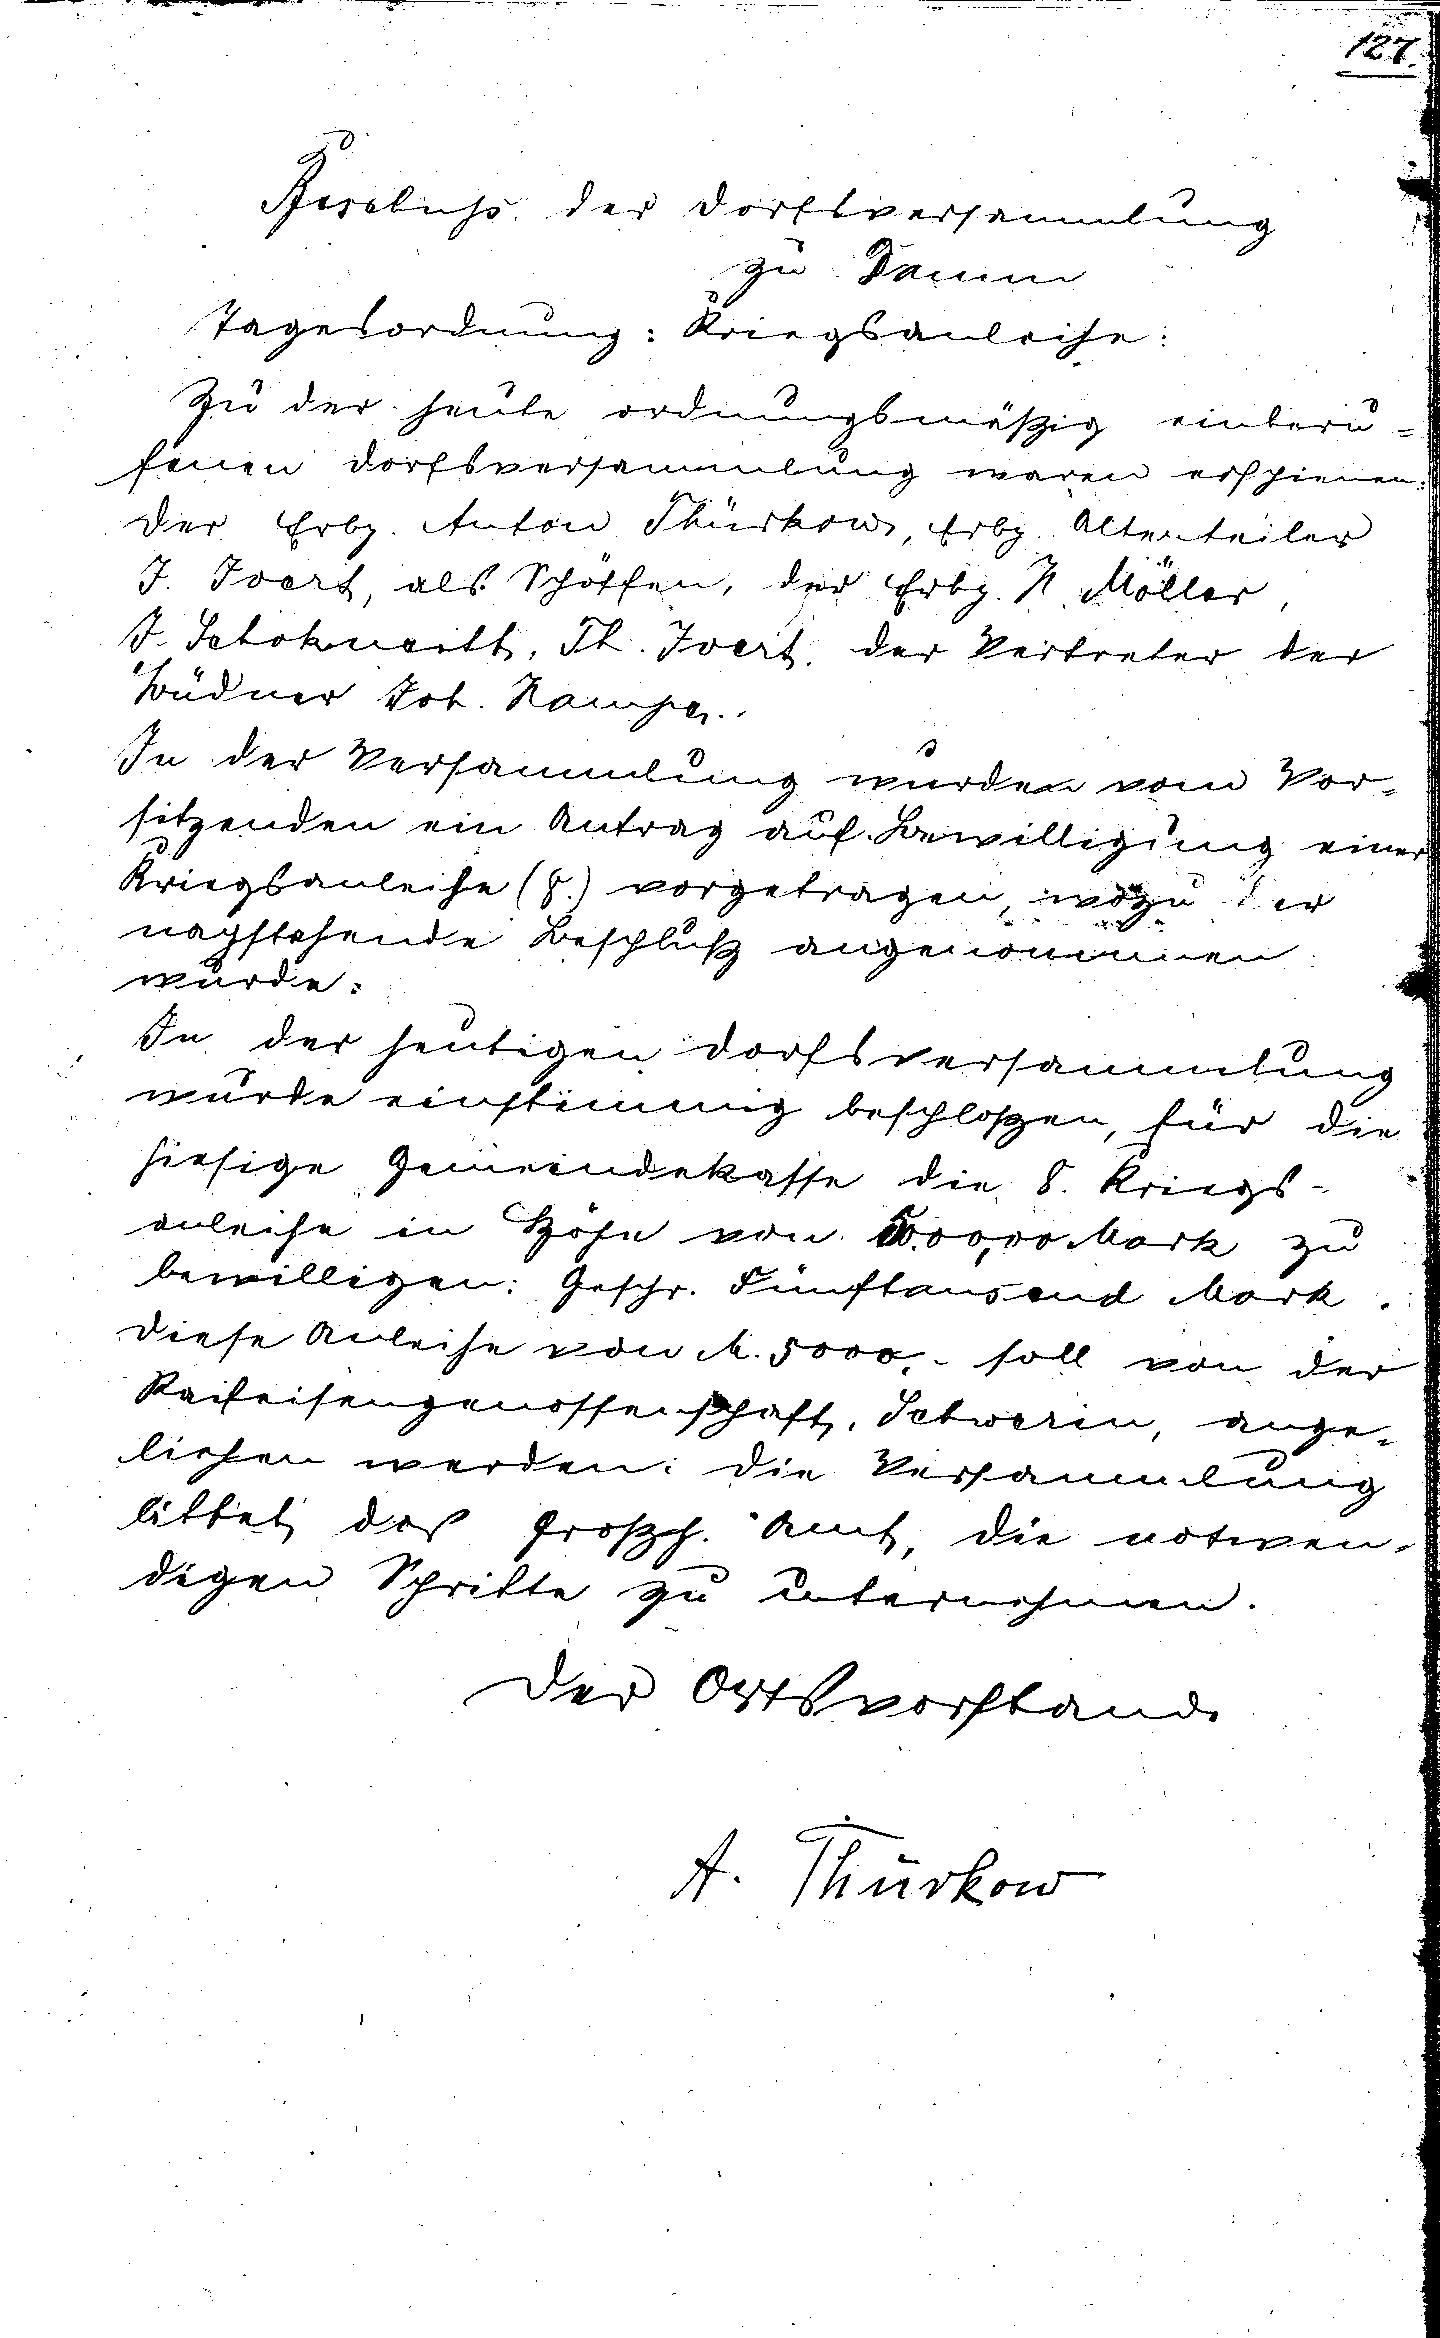 127.
Beschluss der Dorfsversammlung
zu Damm
Tagesordnung: Kriegsanleihe:
Zu der heute ordnungsmäßig einberu-
fenen Dorfsversammlung waren erschienen:
Der Erbp. Anton Thürkow, Erbp. Altenteiler
J. Evert, als Schöffen, der Erbp. H. Möller,
J. Th. Evert, der Vertreter der
Büdner Joh.
In der Versammlung wurden vom Vor-
sitzenden ein Antrag auf Bewilligung einer
Kriegsanleihe (8.) vorgetragen, wozu der
nachstehende Beschluß angenommen
wurde:
In der heutigen Dorfsversammlung
wurde einstimmig beschloßen, für die
hiesige Gemeindekasse die 8. Kriegs-
anleihe in Höhe von 50.00,00 Mark zu
bewilligen: Geschr. Fünftausend Mark.
Diese Anleihe von M. 5000,- soll von der
Raifeisengenossenschaft, Schwerin, ange-
liehen werden. Die Versammlung
bittet das Großh. Amt, die notwen-
digen Schritte zu unternehmen.
Der Ortsvorstand.
A. Thürkow